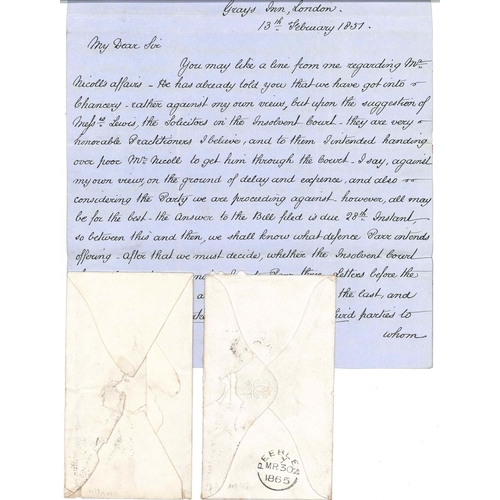 Grays Inn, London.
13th February 1851.
My Dear Sir
You may like a line from me regarding Mr
Nicolls affairs - He has already told you that we have got into
Chancery - rather against my own views, but upon the suggestion of
Messrs Lewis, the Solicitors in the Insolvent Court - they are very
honorable Practitioners I believe, and to them I intended handing
over poor Mr Nicoll to get him through the Court - I say, against
my own view, on the ground of delay and expence, and also
considering the Party we are proceeding against - however, all may
be for the best - the Answer to the Bill filed is due 28th Instant,
so between this and then, we shall know what defence Parr intends
offering - After that we must decide, whether the Insolvent Court
Letters before the
the last, and
parties to
whom
PEEBLES
MR 30
1865